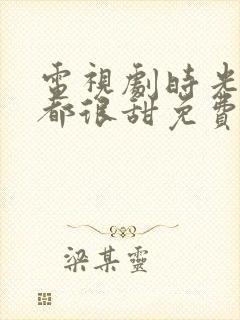 電視劇時光
都很甜免費
梁某靈